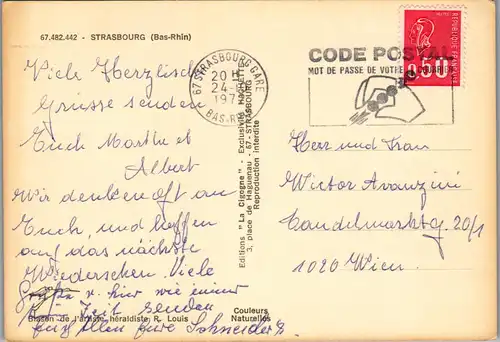 67.482.442 - STRASBOURG (Bas-Rhin)
Viele Herzliche
Grüsse senden
Euch Marthe et
Albert
Wir denken oft an
Euch, und hoffen
auf das nächste
Wiedersehen. Viele
Grüße v. hier wie immer
Zeit senden
Euch Allen Eure Schneider
Blason de l'artiste héraldiste R. Louis
Couleurs
Naturelles
Editions "La Cigogne" - Exclusivité HACHETTE
3, place de Haguenau - 67-STRASBOURG
Reproduction interdite
67 STRASBOURG GARE
20 H
24-
197
BAS-RHIN
CODE POSTAL
MOT DE PASSE DE VOTRE COURRIER
0,50
Herr und Frau
Victor Avanzini
Landelmarktg. 20/1
1020 Wien.